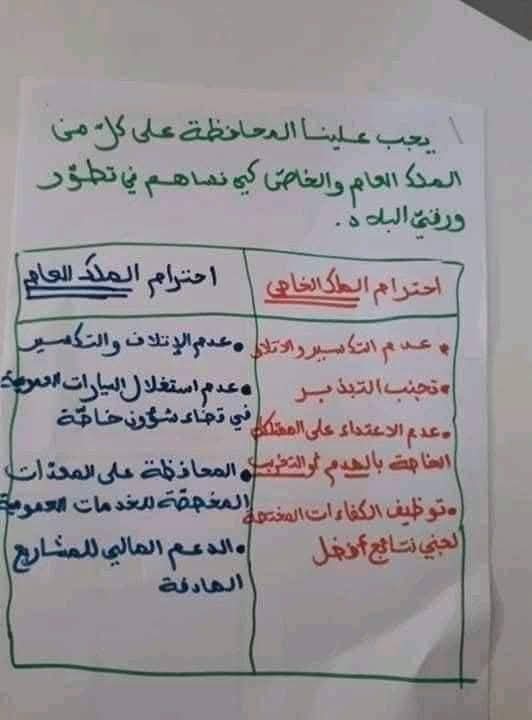 يجب علينا المحافظة على كلّ من
الملك العام والخاصّ كي نساهم في تطوّر
ورقيّ البلاد.
احترام الملك الخاص
عدم التكسير والاتلاف
تجنب التبذير
عدم الاعتداء على الممتلكات
الخاصة بالهدم أو التخريب
توظيف الكفاءات المختصة
لجني نتائج أفضل
احترام الملك العام
عدم الإتلاف والتكسير
عدم استغلال السيارات العمومية
في قضاء شؤون خاصّة
المحافظة على المعدّات
المخصّصة للخدمات العمومية
الدعم المالي للمشاريع
الهادفة